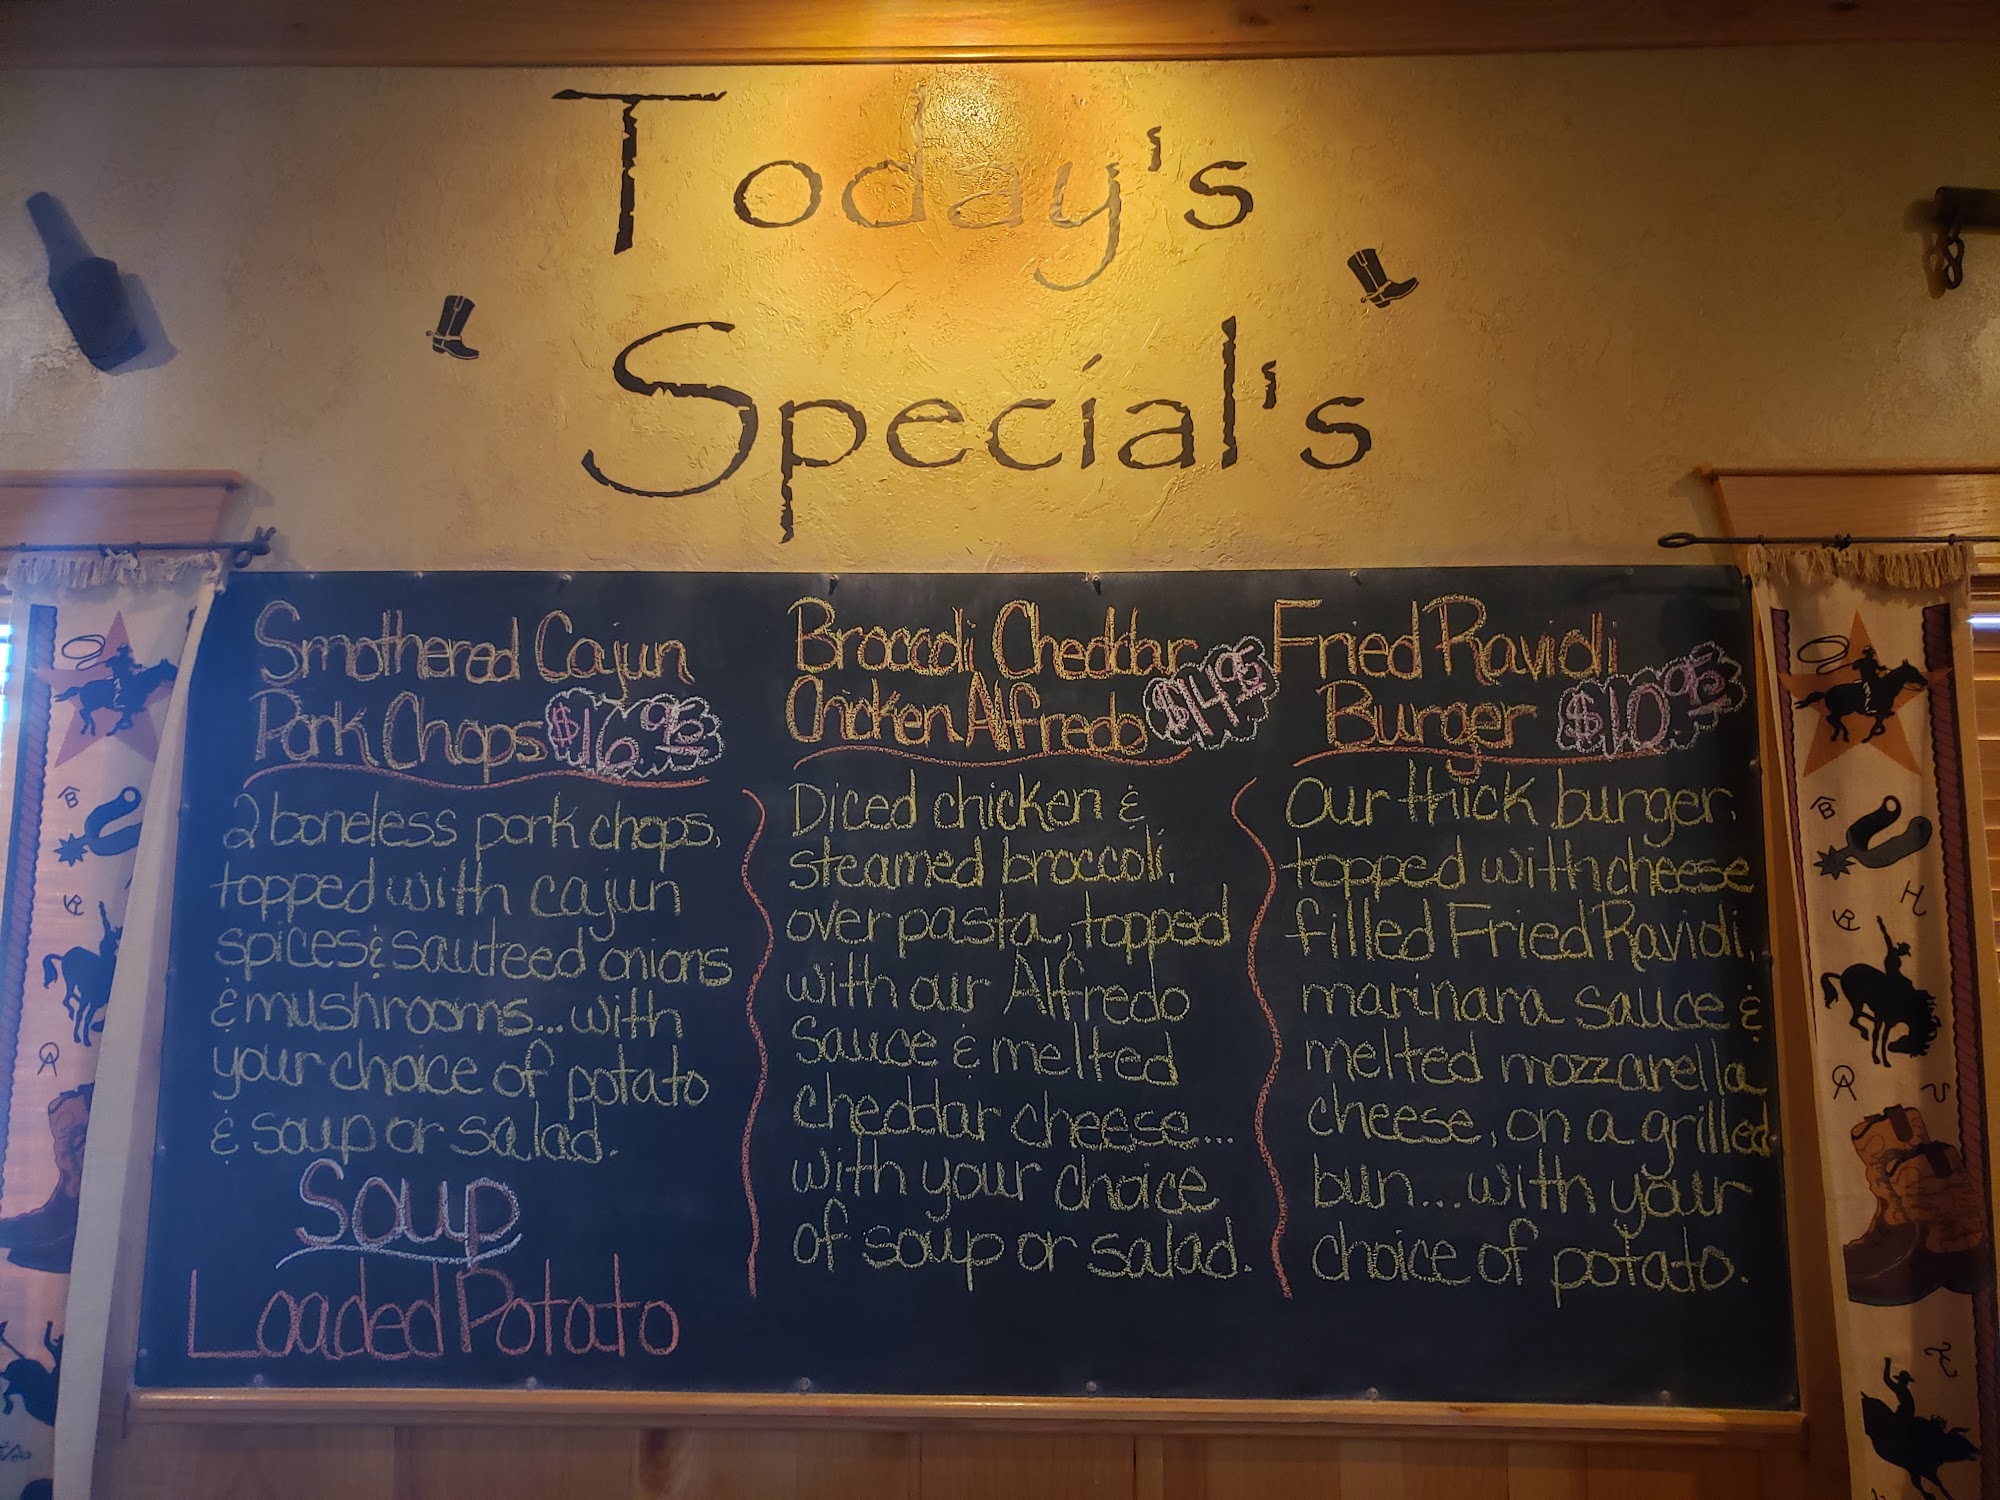 Today's
Special's
Smothered Cajun
Pork Chops $16.95
2 boneless pork chops,
topped with cajun
spices & sauteed onions
& mushrooms... with
your choice of potato
& soup or salad.
Soup
Loaded Potato
Broccoli Cheddar
Chicken Alfredo $14.95
Diced chicken &
steamed broccoli,
over pasta, topped
with our Alfredo
sauce & melted
cheddar cheese...
with your choice
of soup or salad.
Fried Ravioli
Burger $10.95
Our thick burger,
topped with cheese
filled Fried Ravioli,
marinara sauce &
melted mozzarella
cheese, on a grilled
bun... with your
choice of potato.